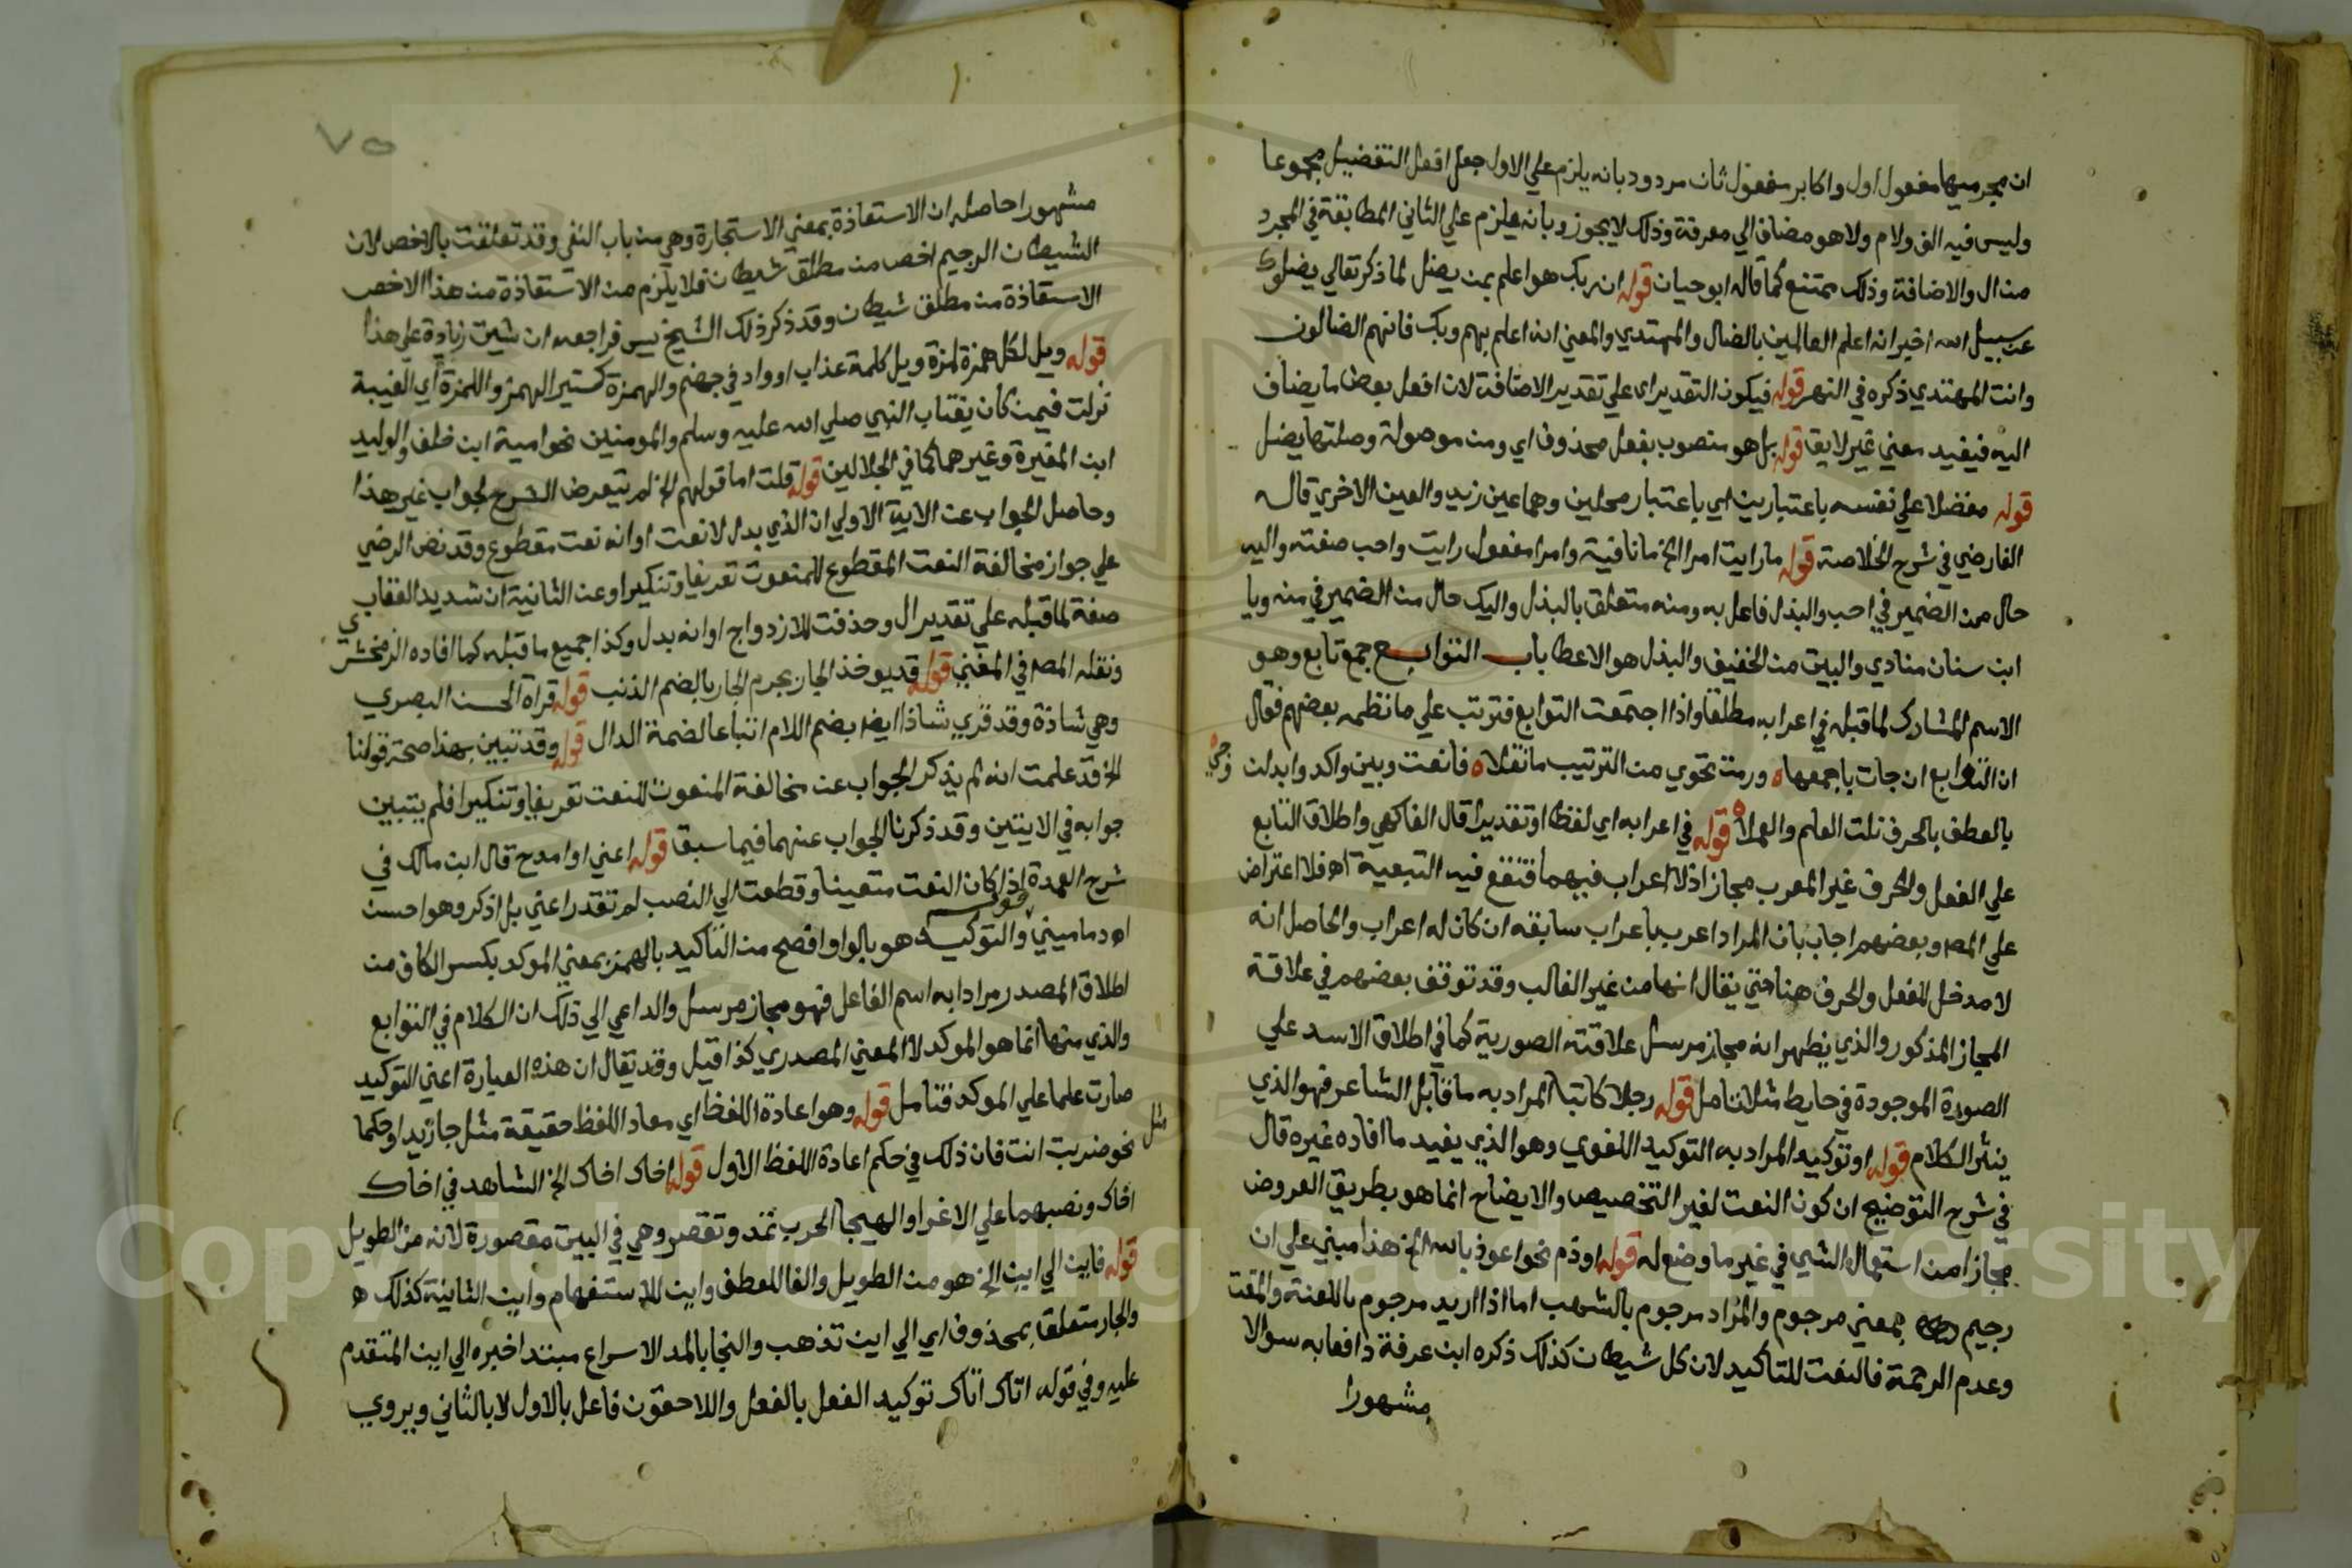 ان مجرميها مفعول اول واكابر مفعول ثان مردود بانه يلزم علي الاول جعل افعل التفضيل مجموعا
وليس فيه الف ولام ولا هو مضاف الي معرفة وذلك لا يجوز وبانه يلزم علي الثاني المطابقة في المجرد
من ال والاضافة وذلك ممتنع كما قاله ابو حيان قوله ان ربك هو اعلم بمن يضل لما ذكر تعالي يضلوك
عن سبيل الله اخبر انه اعلم العالمين بالضال والمهتدي والمعني انه اعلم بهم وبك فانهم الضالون
وانت المهتدي ذكره في النهر قوله فيكون التقدير اي علي تقدير الاضافة لان افعل بعض ما يضاف
اليه فيفيد معني غير لايق قوله بل هو منصوب بفعل محذوف اي ومن موصولة وصلتها يضل
قوله مفضلا علي نفسه باعتبارين اي باعتبار محلين وهما عين زيد والعين الاخري قال
الفارضي في شرح الخلاصة قوله ما رايت امرا الخ ما نافية وامرا مفعول رايت واحب صفته واليه
حال من الضمير في احب والبذل فاعل به ومنه متعلق بالبذل واليك حال من الضمير في منه ويا
ابن سنان منادي والبيت من الخفيف والبذل هو الاعطا باب التوابع جمع تابع وهو
الاسم المشارك لما قبله في اعرابه مطلقا واذا اجتمعت التوابع فترتب علي ما نظمه بعضهم فقال
ان التوابع ان جات باجمعها ه ورمت تحوي من الترتيب ما نقلا ه فانعت وبين واكد وابدلن
بالعطف بالحرف نلت العلم والعملا ه قوله في اعرابه اي لفظا او تقديرا قال الفاكهي واطلاق التابع
علي الفعل والحرف غير المعرب مجاز اذ لا اعراب فيهما فتقع فيه التبعية اه فلا اعتراض
علي المص وبعضهم اجاب بان المراد اعرب باعراب سابقه ان كان له اعراب والحاصل انه
لا مدخل للفعل والحرف هنا حتي يقال انها من غير الغالب وقد توقف بعضهم في علاقة
المجاز المذكور والذي يظهر انه مجاز مرسل علاقته الصورية كما في اطلاق الاسد علي
الصورة الموجودة في حايط مثلا تامل قوله رجلا كاتبا المراد به ما قابل الشاعر فهو الذي
ينثر الكلام قوله او توكيد المراد به التوكيد اللغوي وهو الذي يفيد ما افاده غيره قال
في شرح التوضيح ان كون النعت لغير التخصيص والايضاح انما هو بطريق العروض
مجازا من استعمال الشي في غير ما وضع له قوله او ذم نحو اعوذ بالله الخ هذا مبني علي ان
رجيم بمعني مرجوم والمراد مرجوم بالشهب اما اذا اريد مرجوم باللعنة والمقت
وعدم الرحمة فالنعت للتاكيد لان كل شيطان كذلك ذكره ابن عرفة دافعا به سوالا
مشهورا
٧٥
مشهورا حاصله ان الاستعاذة بمعني الاستجارة وهي من باب النفي وقد تعلقت بالاخص لان
الشيطان الرجيم اخص من مطلق شيطان فلا يلزم من الاستعاذة من هذا الاخص
الاستعاذة من مطلق شيطان وقد ذكر ذلك الشيخ يس فراجعه ان شيت زيادة علي هذا
قوله ويل لكل همزة لمزة ويل كلمة عذاب او واد في جهنم والهمزة كثير الهمز واللمزة اي الغيبة
نزلت فيمن كان يغتاب النبي صلي الله عليه وسلم والمومنين نحو امية ابن خلف والوليد
ابن المغيرة وغيرهما كما في الجلالين قوله قلت اما قولهم الخ لم يتعرض الشرح لجواب غير هذا
وحاصل الجواب عن الاية الاولي ان الذي بدل لا نعت او انه نعت مقطوع وقد نص الرضي
علي جواز مخالفة النعت المقطوع للمنعوت تعريفا وتنكيرا وعن الثانية ان شديد العقاب
صفة لما قبله علي تقدير ال وحذفت للازدواج او انه بدل وكذا جميع ما قبله كما افاده الزمخشري
ونقله المص في المغني قوله قد يوخذ الجار بجرم الجار بالضم الذنب قوله قراة الحسن البصري
وهي شاذة وقد قري شاذا ايضا بضم اللام اتباعا لضمة الدال قوله وقد تبين بهذا صحة قولنا
الخ قد علمت انه لم يذكر الجواب عن مخالفة المنعوت للنعت تعريفا وتنكيرا فلم يتبين
جوابه في الايتين وقد ذكرنا الجواب عنهما فيما سبق قوله اعني او امدح قال ابن مالك في
شرح العمدة اذا كان النعت متعينا وقطعت الي النصب لم تقدر اعني بل اذكر وهو احسن
اه دماميني قوله والتوكيد هو بالواو افصح من التاكيد بالهمز بمعني الموكد بكسر الكاف من
اطلاق المصدر مرادا به اسم الفاعل فهو مجاز مرسل والداعي الي ذلك ان الكلام في التوابع
والذي منها انما هو الموكد لا المعني المصدري كذا قيل وقد يقال ان هذه العبارة اعني التوكيد
صارت علما علي الموكد فتامل قوله وهو اعادة اللفظ اي معاد اللفظ حقيقة مثل جا زيد او حكما
مثل
نحو ضربت انت فان ذلك في حكم اعادة اللفظ الاول قوله اخاك اخاك الخ الشاهد في اخاك
اخاك ونصبهما علي الاغرا والهيجا الحرب تمد وتقصر وهي في البيت مقصورة لانه من الطويل
قوله فاين الي اين الخ هو من الطويل والفا للعطف واين للاستفهام واين الثانية كذلك ه
والجار متعلق بمحذوف اي الي اين تذهب والنجا بالمد الاسراع مبتدا خبره الي اين المتقدم
عليه وفي قوله اتاك اتاك توكيد الفعل بالفعل واللاحقون فاعل بالاول لا بالثاني ويروي